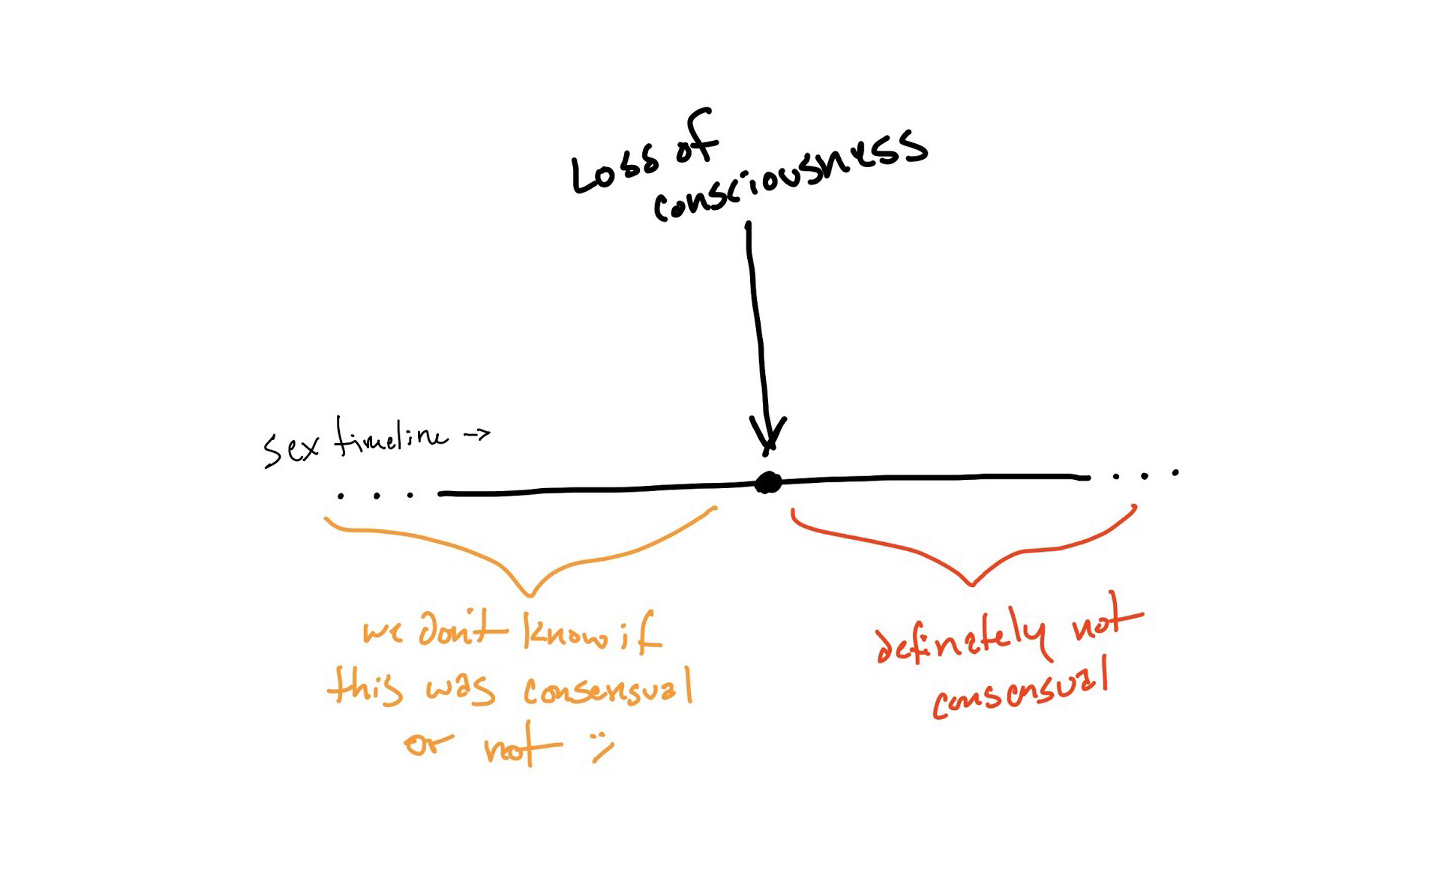 Loss of
consciousness
sex timeline →
. . .
. . .
we don't know if
this was consensual
or not :/
definately not
consensual